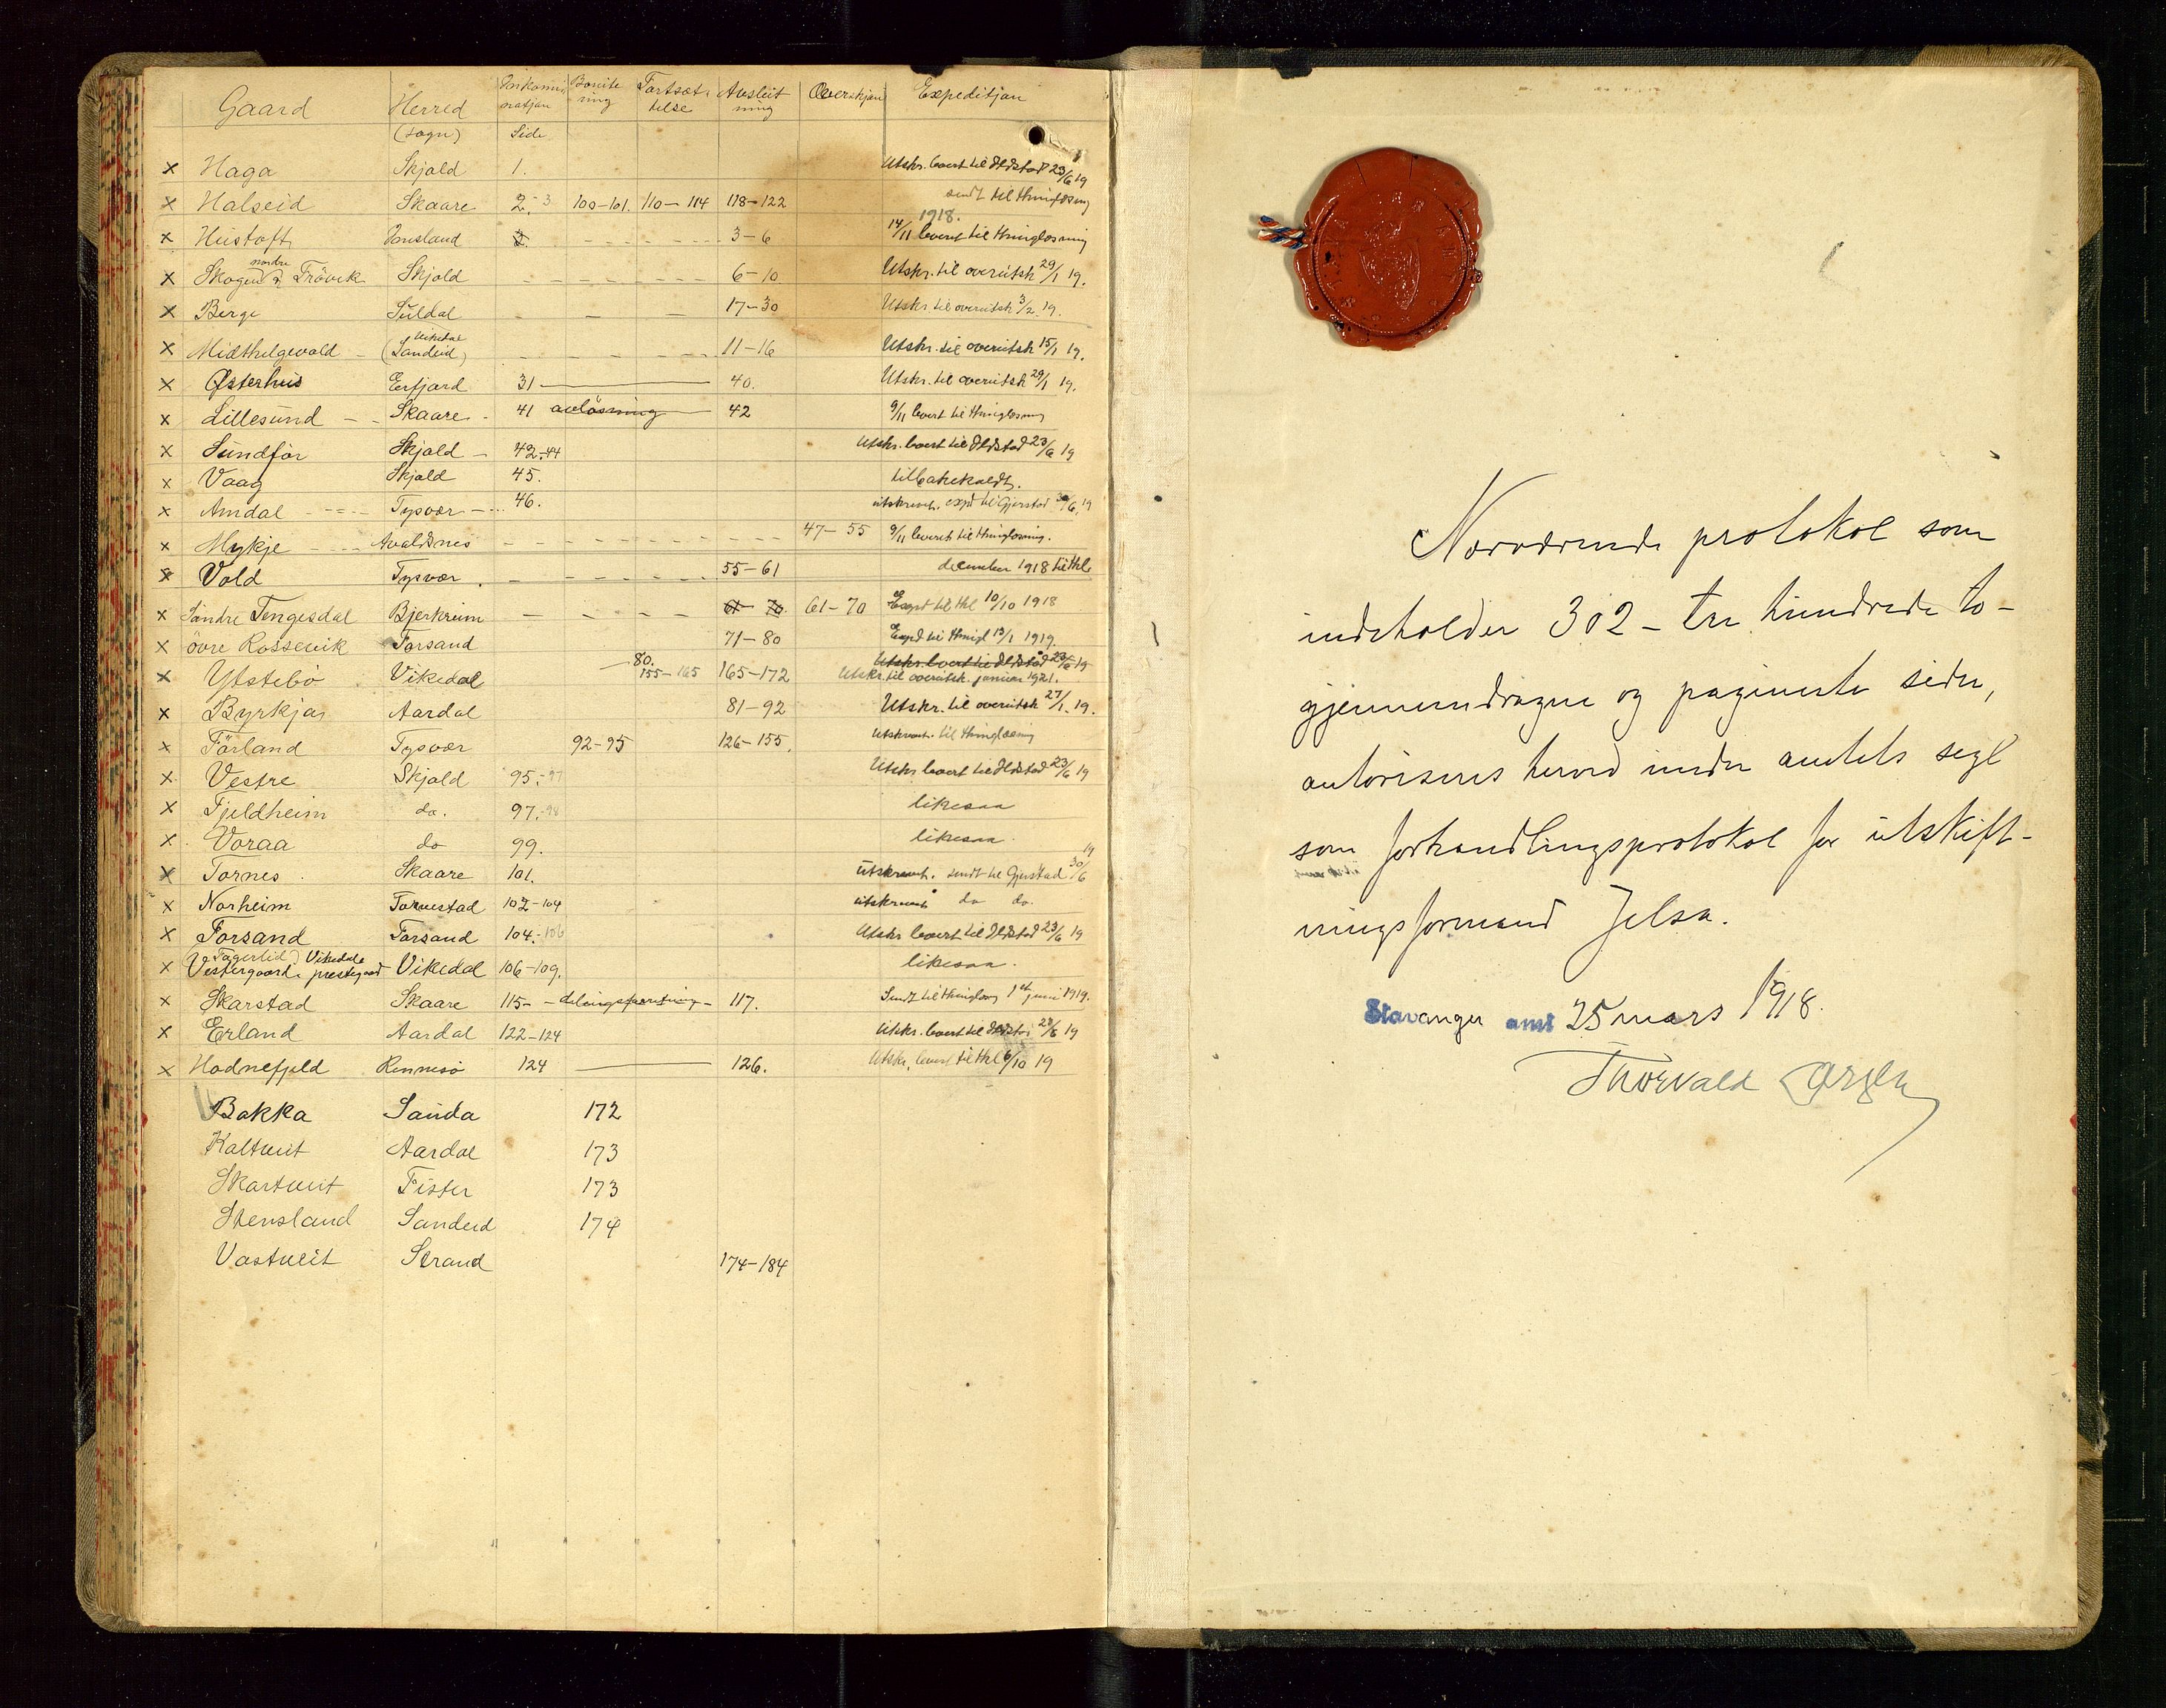 Gaard Herred Inkomi- Bonite- Fortsæt- Avslüt- Overskjøn Expeditjon
natjon ning telse ning
(sogn) Side
x Haga Skjold 1. Utskr. levert til Oldstad 23/6 19
x Halseid Skaare 2.-3 100-101. 110-114 118-122 sendt til thinglæsning
1918.
x Hüstoft 3-6 14/11 levert til thinglæsning
nordre
x Skogen Frövik Skjold 6-10 Utskr. til overütsk 29/1 19.
x Berge Süldal 17-30 Utskr til overütsk 3/2 19.
Vikedal
x Midthelgevold (Sandeid) 11-16 Utskr. til overütsk 15/1 19.
x Østerhüs Erfjord 31 40. Utskr. til overütsk 29/1 19.
x Lillesünd Skaare 41 avløsning 42 9/11 levert til thinglæsning
x Sündfør Skjold 42-44 Utskr. levert til Oldstad 23/6 19
x Vaag Skjold 45. tilbakekaldt.
x Amdal Tysvær 46. ütskrevet. expd til Gjerstad 30/6 19
x Mykje Avaldsnes 47-55 9/11 levert til thinglæsning.
x Vold Tysvær. 55-61 december 1918 til thl
x Søndre Tengesdal Bjerkreim 61-70. 61-70 Expd til thl 10/10 1918
x övre Rossevik Forsand 71-80 Expd til thingl 13/1 1919
80. Utskr. levert til Oldstad 23/6 19
x Ystebö Vikedal 155-165 165-172 Utskr. til overütsk. januar 1921.
x Byrkja Aardal 81-92 Utskr. til overütsk 27/1. 19.
x Førland Tysvær 92-95 126-155. Utskrevet. til thinglæsning
x Vestre Skjold 95-97 Utskr levert til Oldstad 23/6 19
x Fjeldheim do. 97.-98 likesaa
x Voraa do 99. likesaa.
x Tornes Skaare 101. ütskrevet. sendt til Gjerstad 30/6 19
x Norheim Torvestad 102-104 ütskrevet do do.
x Forsand Forsand 104.-106 Utskr levert til Oldstad 23/6 19
(Fagerlid) Vikedals
x Vestergaard i prestegaard Vikedal 106-109. likesaa.
x Skarstad Skaare 115- delingsforretning 117. Sendt til thinglæsn 1ste juni 1919.
x Erland Aardal 122-124 Utskr. levert til Oldstad 23/6 19
x Hodnefjeld Rennesö 124 126. Utskr. levert til thl 6/10 19
Bakka Sauda 172
Kaltveit Aardal 173
Skartveit Fister 173
Stensland Sandeid 174
Vastveit Strand 174-184
Nærværende protokol som
indeholder 302 - tre hundrede to -
gjennemdragne og paginerte sider,
autoriseres herved under amtets segl
som forhandlingsprotokol for utskift-
ningsformand Jelsa.
Stavanger amt 25 mars 1918.
Thorvald Larsen